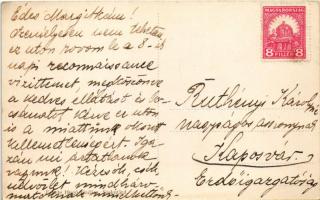 Édes Margitkám!
Személyesen nem tehetem
ez úton rovom le a 8-
napi reconnaissance
vizittemet, megköszönve
a kedves ellátást és bo-
csánatot kérve ez úton
is a miattunk okozott
kellemetlenségért. Iga-
zán mi ártatlanok
vagyunk! Kézcsók, csók
üdvözlet mindhár-
matoknak mindnyájunktól
MAGYARORSZÁG
8 8
FILLÉR
Ruthényi Károlyné
nagyságos asszonynak
Kaposvár.
Erdőigazgatóság